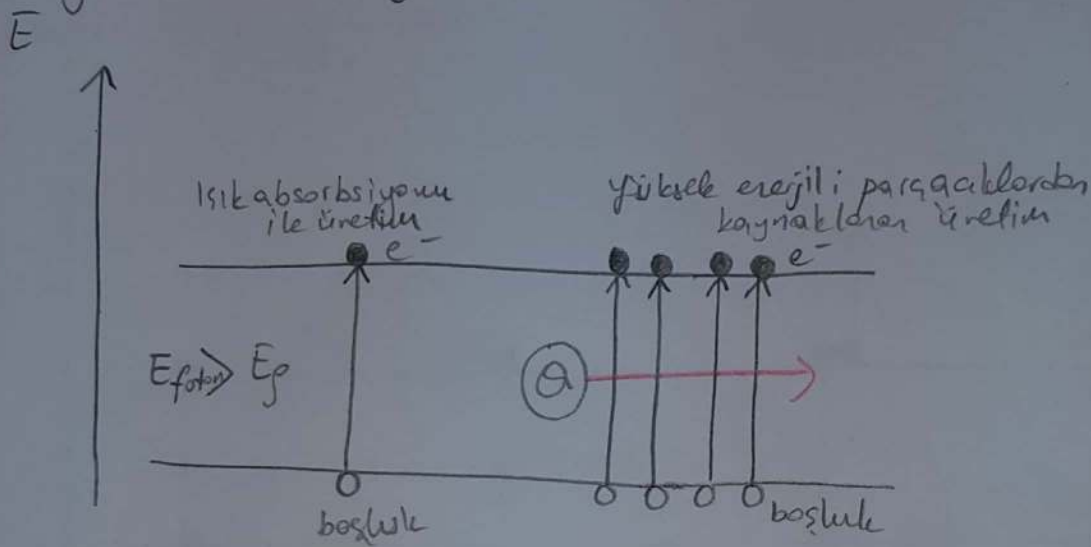 E
Işık absorbsiyonu
ile üretim
e⁻
yüksek enerjili parçacıklardan
kaynaklanan üretim
e⁻
E_foton > E_g
Q
boşluk
boşluk